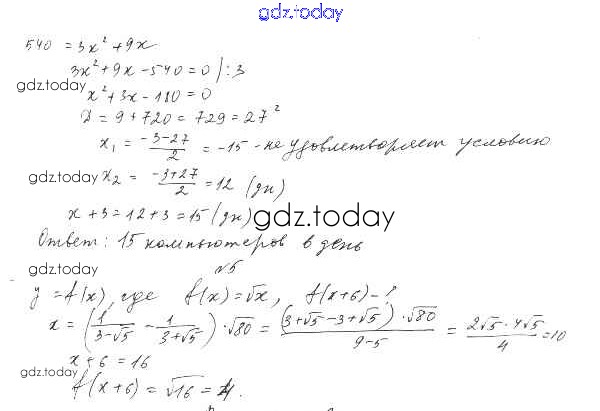 gdz.today
540 = 3x² + 9x
3x² + 9x - 540 = 0 /:3
gdz.today
x² + 3x - 180 = 0
D = 9 + 720 = 729 = 27²
x₁ = (-3-27)/2 = -15 - не удовлетворяет условию
gdz.today x₂ = (-3+27)/2 = 12 (дн)
x + 3 = 12 + 3 = 15 (дн) gdz.today
Ответ: 15 компьютеров в день
gdz.today №5
y = f(x), где f(x) = √x, f(x+6) - ?
x = (1/(3-√5) - 1/(3+√5)) · √80 = ((3+√5-3+√5) · √80)/(9-5) = (2√5 · 4√5)/4 = 10
x + 6 = 16
gdz.today
f(x+6) = √16 = 4.